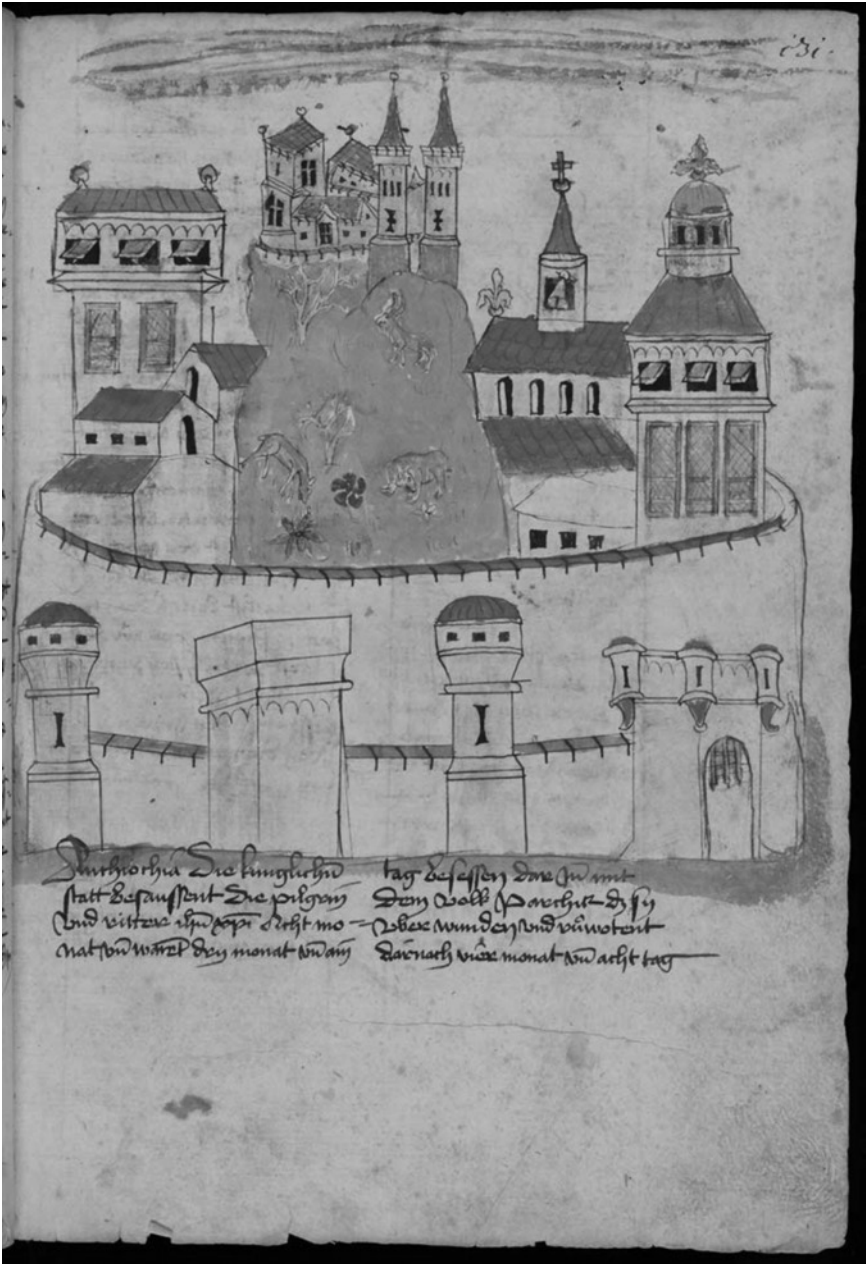 c3i.
Anthiochia Die kunglichn̄
statt besaussent Die pilgrin
vnd ritter ihū xp̄i Acht mo=
nat vn̄ warēt dry monat vn̄ ain
tag besessen dar Jn̄ mit
dem volk Parthier dz sy
vber wunden vnd rūwotent
darnach vier monat vn̄ acht tag